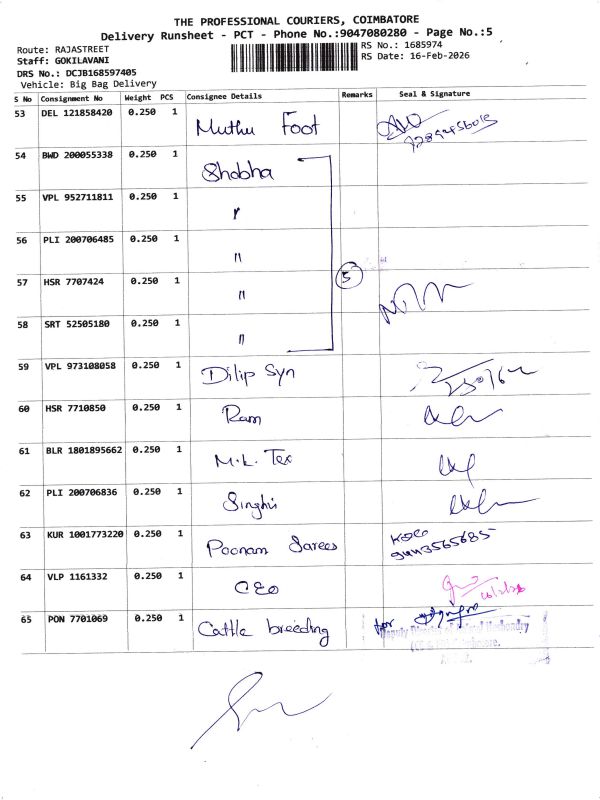 THE PROFESSIONAL COURIERS, COIMBATORE
Delivery Runsheet - PCT - Phone No.:9047080280 - Page No.:5
Route: RAJASTREET
RS No.: 1685974
Staff: GOKILAVANI
RS Date: 16-Feb-2026
DRS No.: DCJB168597405
Vehicle: Big Bag Delivery
S No Consignment No Weight PCS Consignee Details Remarks Seal & Signature
53 DEL 121858420 0.250 1 Muthu Foot
54 BWD 200055338 0.250 1 Shobha
55 VPL 952711811 0.250 1 "
56 PLI 200706485 0.250 1 "
57 HSR 7707424 0.250 1 " 5
58 SRT 52505180 0.250 1 "
59 VPL 973108058 0.250 1 Dilip Syn
60 HSR 7710850 0.250 1 Ram
61 BLR 1801895662 0.250 1 M.K. Tex
62 PLI 200706836 0.250 1 Singhvi
63 KUR 1001773220 0.250 1 Poonam Sarees
64 VLP 1161332 0.250 1 CEO 16/2/26
65 PON 7701069 0.250 1 Cattle breeding for
Deputy Director of Animal Husbandry